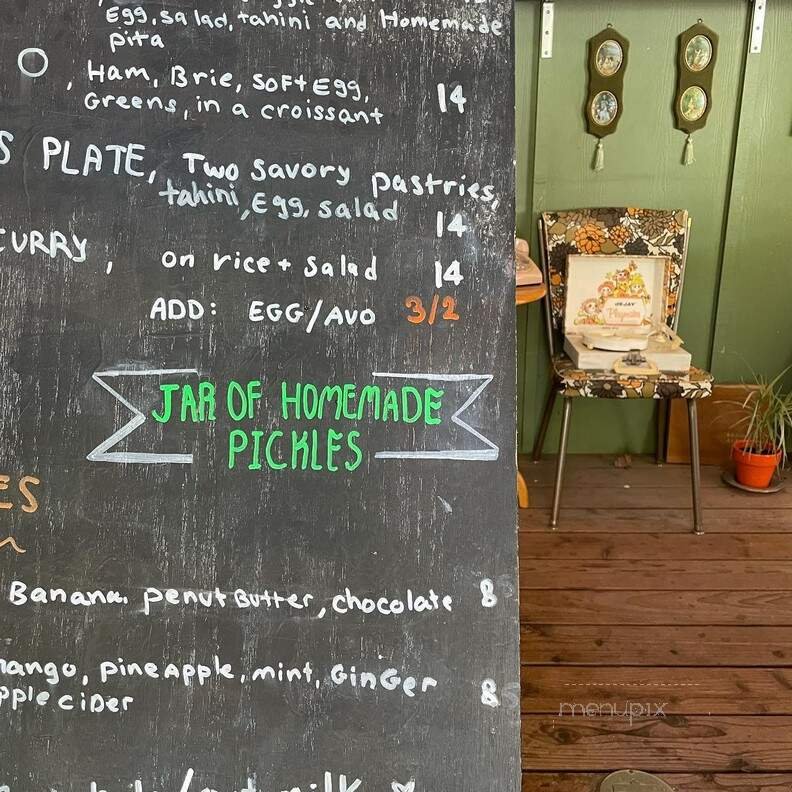 Egg, salad, tahini and Homemade
pita
O, Ham, Brie, SOFT Egg,
Greens, in a croissant 14
S PLATE, Two savory pastries,
tahini, Egg, salad
14
CURRY, on rice + salad 14
ADD: EGG/AVO 3/2
JAR OF HOMEMADE
PICKLES
ES
Banana, penut Butter, chocolate 8
mango, pineApple, mint, GinGer
pple ciDer 8
menupix